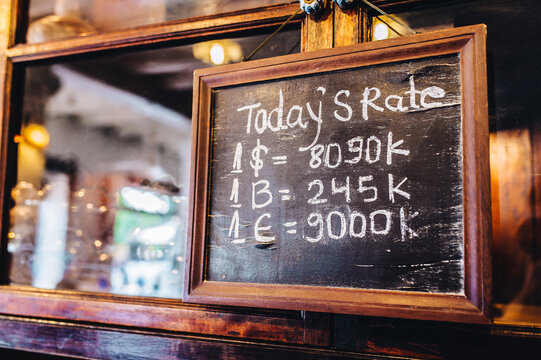 Today's Rate
1 $ = 8090 K
1 B = 245 K
1 € = 9000 K